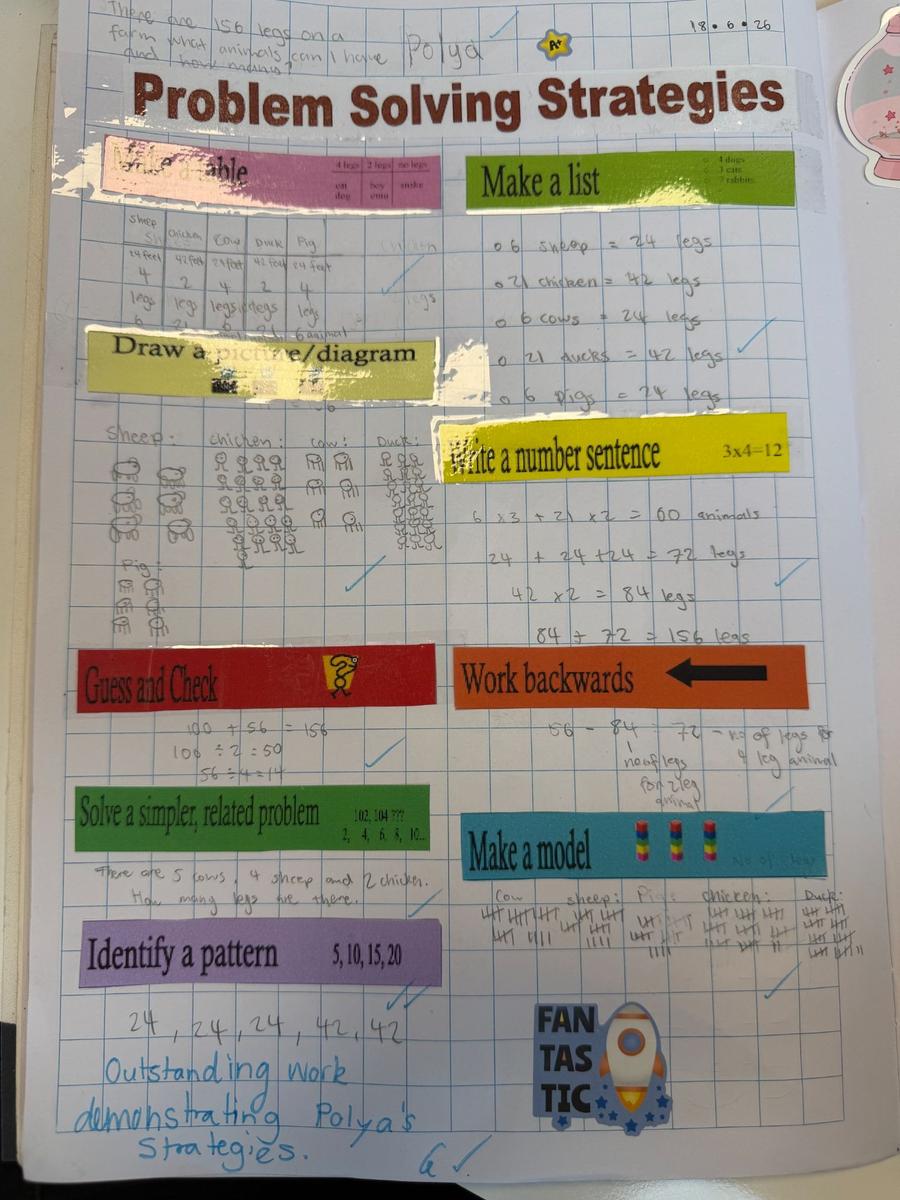 There are 156 legs on a
farm what animals can I have
and how many?
Polya
A+
18 • 6 • 26
Problem Solving Strategies
Make a table
4 legs 2 legs no legs
cat boy snake
dog emu
sheep chicken Cow Duck Pig
24 feet 42 feet 24 feet 42 feet 24 feet
4 2 4 2 4
legs legs legs legs legs
6 21 6 21 6 animal
Make a list
○ 4 dogs
○ 3 cats
○ 7 rabbits
o 6 sheep = 24 legs
o 21 chicken = 42 legs
o 6 cows = 24 legs
o 21 ducks = 42 legs
o 6 pigs = 24 legs
Draw a picture/diagram
Sheep: chicken: cow: Duck:
Pig:
Write a number sentence 3x4=12
6 x3 + 21 x2 = 60 animals
24 + 24 +24 = 72 legs
42 x2 = 84 legs
84 + 72 = 156 legs
Guess and Check
100 + 56 = 156
100 ÷ 2 = 50
56 ÷ 4 = 14
Work backwards
56 - 84 = 72 - no of legs for
4 leg animal
no of legs
for 2 leg
animal
Solve a simpler, related problem 102, 104 ???
2, 4, 6, 8, 10...
There are 5 cows, 4 sheep and 2 chicken.
How many legs are there.
Make a model
No of legs
Cow sheep: Pig: chicken: Duck:
Identify a pattern 5, 10, 15, 20
24, 24, 24, 42, 42
Outstanding work
demonstrating Polya's
Strategies.
FAN
TAS
TIC